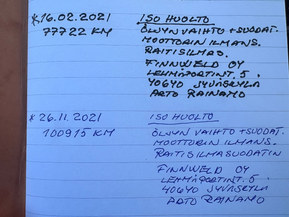 * 16.02.2021 ISO HUOLTO
77722 KM ÖLJYN VAIHTO + SUODAT.
MOOTTORIN ILMANS.
RAITISILMAS.
FINNWELD OY
LEHMÄPORTINT. 5.
40640 JYVÄSKYLÄ
ARTO RAINAMO
* 26.11.2021 ISO HUOLTO
100915 KM ÖLJYN VAIHTO + SUODAT.
MOOTTORIN ILMANS.
RAITISILMASUODATIN
FINNWELD OY
LEHMÄPORTINT. 5.
40640 JYVÄSKYLÄ
ARTO RAINAMO